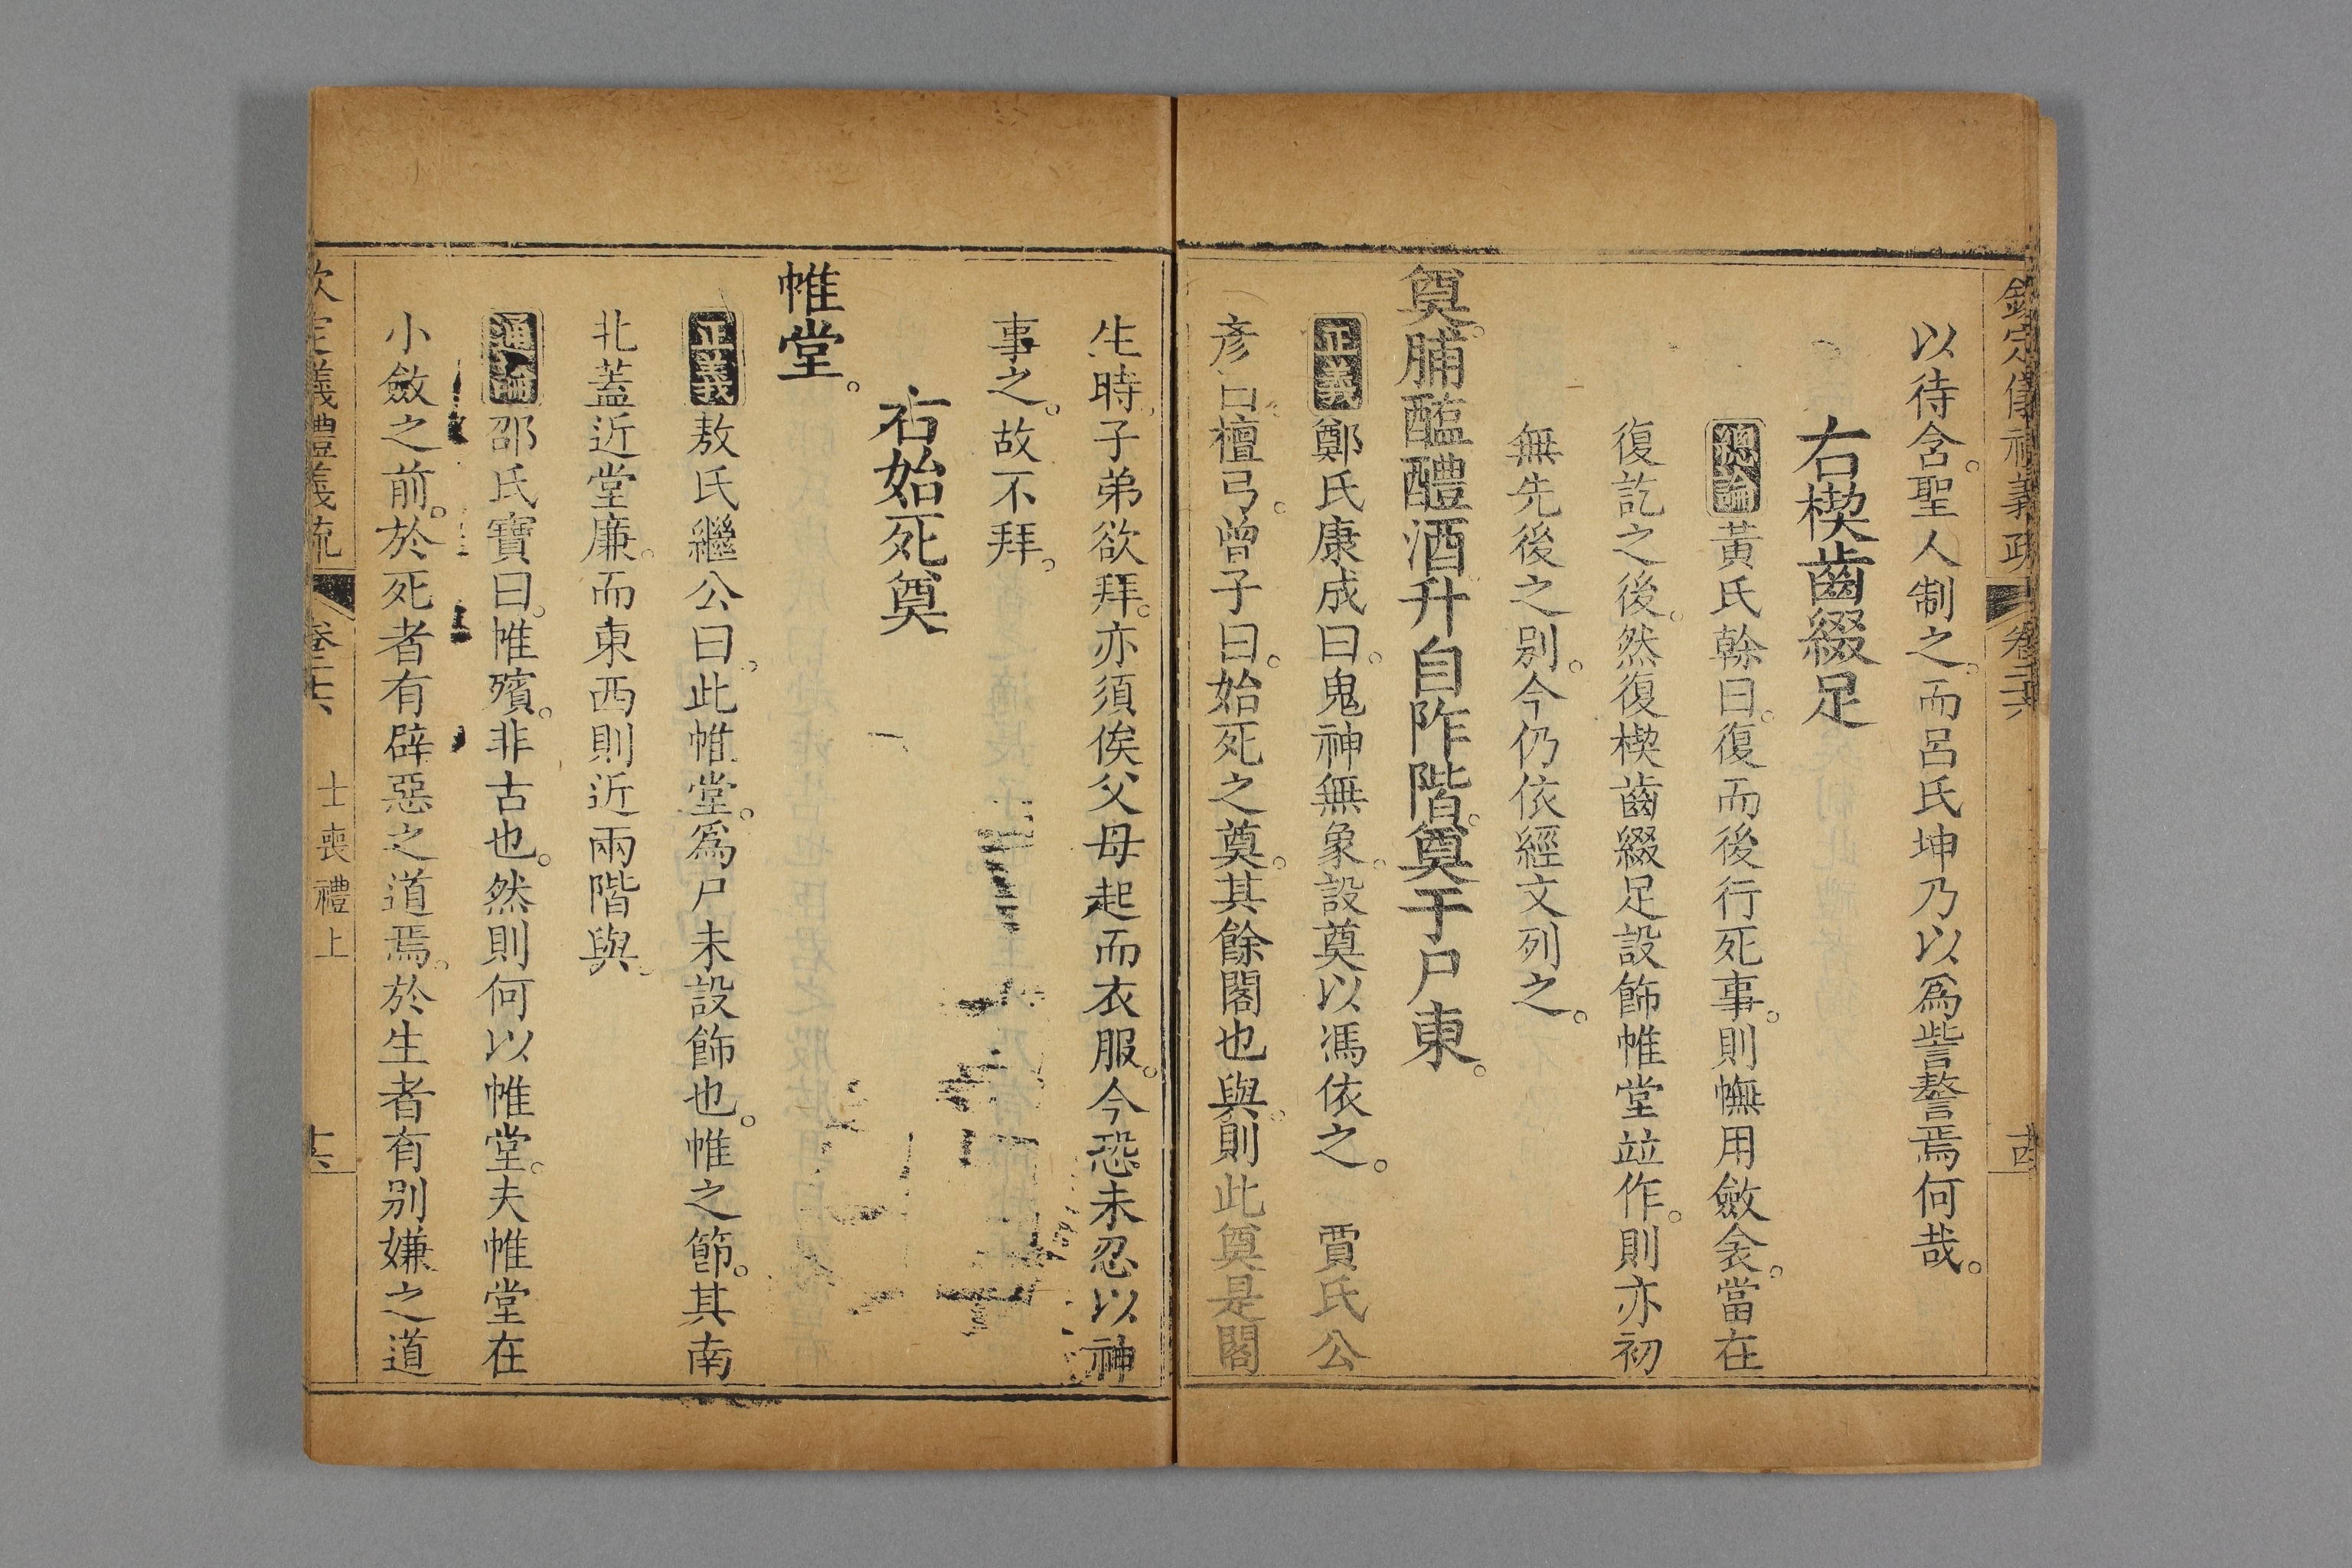 欽定儀禮義疏 卷二十六 十四
以待含。聖人制之。而呂氏坤乃以爲訾謷焉何哉。
右楔齒綴足
總論黃氏榦曰。復而後行死事。則幠用斂衾。當在
復訖之後。然復楔齒綴足設飾帷堂竝作。則亦初
無先後之别。今仍依經文列之。
奠。脯醢醴酒升自阼階。奠于尸東。
正義鄭氏康成曰。鬼神無象。設奠以馮依之。 賈氏公
彥曰。檀弓。曾子曰。始死之奠。其餘閣也與。則此奠是閣
生時。子弟欲拜。亦須俟父母起而衣服。今恐未忍以神
事之。故不拜。
右始死奠
帷堂。
正義敖氏繼公曰。此帷堂。爲尸未設飾也。帷之節。其南
北蓋近堂廉。而東西則近兩階與。
通論邵氏寶曰。帷殯。非古也。然則何以帷堂。夫帷堂在
小斂之前。於死者有辟惡之道焉。於生者有别嫌之道
欽定儀禮義疏 卷二十六 士喪禮上 十六